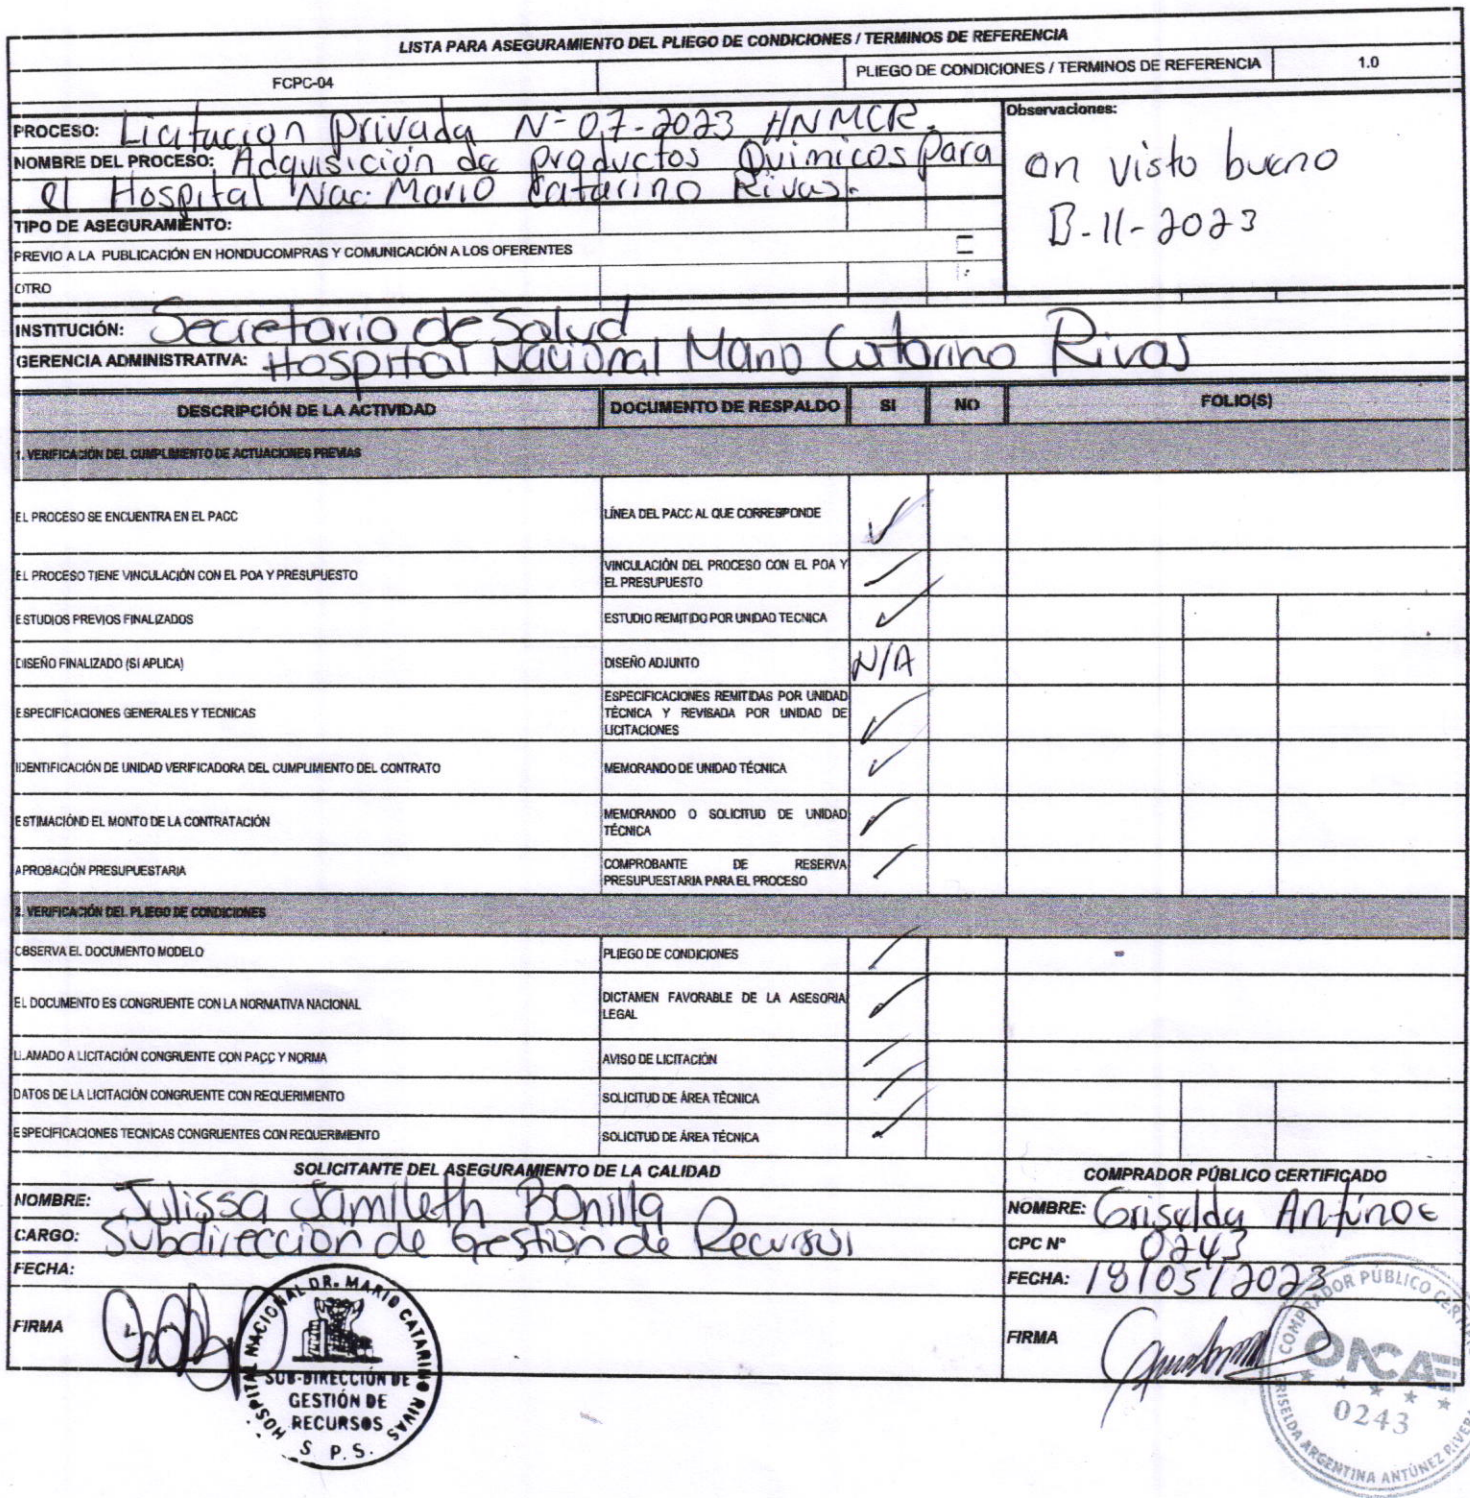 LISTA PARA ASEGURAMIENTO DEL PLIEGO DE CONDICIONES / TERMINOS DE REFERENCIA
FCPC-04 PLIEGO DE CONDICIONES / TERMINOS DE REFERENCIA 1.0
PROCESO: Licitacion Privada Nº 07-2023 HNMCR.
NOMBRE DEL PROCESO: Adquisición de productos Químicos para
el Hospital Nac. Mario Catarino Rivas.
Observaciones:
on visto bueno
B-11-2023
TIPO DE ASEGURAMIENTO:
PREVIO A LA PUBLICACIÓN EN HONDUCOMPRAS Y COMUNICACIÓN A LOS OFERENTES
OTRO
INSTITUCIÓN: Secretario de Salud
GERENCIA ADMINISTRATIVA: Hospital Nacional Mario Catarino Rivas
DESCRIPCIÓN DE LA ACTIVIDAD DOCUMENTO DE RESPALDO SI NO FOLIO(S)
1. VERIFICACIÓN DEL CUMPLIMIENTO DE ACTUACIONES PREVIAS
EL PROCESO SE ENCUENTRA EN EL PACC LÍNEA DEL PACC AL QUE CORRESPONDE ✓
EL PROCESO TIENE VINCULACIÓN CON EL POA Y PRESUPUESTO VINCULACIÓN DEL PROCESO CON EL POA Y
EL PRESUPUESTO ✓
ESTUDIOS PREVIOS FINALIZADOS ESTUDIO REMITIDO POR UNIDAD TECNICA ✓
DISEÑO FINALIZADO (SI APLICA) DISEÑO ADJUNTO N/A
ESPECIFICACIONES GENERALES Y TECNICAS ESPECIFICACIONES REMITIDAS POR UNIDAD
TÉCNICA Y REVISADA POR UNIDAD DE
LICITACIONES ✓
IDENTIFICACIÓN DE UNIDAD VERIFICADORA DEL CUMPLIMIENTO DEL CONTRATO MEMORANDO DE UNIDAD TÉCNICA ✓
ESTIMACIÓND EL MONTO DE LA CONTRATACIÓN MEMORANDO O SOLICITUD DE UNIDAD
TÉCNICA ✓
APROBACIÓN PRESUPUESTARIA COMPROBANTE DE RESERVA
PRESUPUESTARIA PARA EL PROCESO ✓
2. VERIFICACIÓN DEL PLIEGO DE CONDICIONES
OBSERVA EL DOCUMENTO MODELO PLIEGO DE CONDICIONES ✓
EL DOCUMENTO ES CONGRUENTE CON LA NORMATIVA NACIONAL DICTAMEN FAVORABLE DE LA ASESORIA
LEGAL ✓
LLAMADO A LICITACIÓN CONGRUENTE CON PACC Y NORMA AVISO DE LICITACIÓN ✓
DATOS DE LA LICITACIÓN CONGRUENTE CON REQUERIMIENTO SOLICITUD DE ÁREA TÉCNICA ✓
ESPECIFICACIONES TECNICAS CONGRUENTES CON REQUERIMIENTO SOLICITUD DE ÁREA TÉCNICA ✓
SOLICITANTE DEL ASEGURAMIENTO DE LA CALIDAD
NOMBRE: Julissa Jamileth Bonilla
CARGO: Subdireccion de Gestion de Recursos
FECHA:
FIRMA
HOSPITAL NACIONAL DR. MARIO CATARINO RIVAS
SUB-DIRECCIÓN DE
GESTIÓN DE
RECURSOS
S.P.S.
COMPRADOR PÚBLICO CERTIFICADO
NOMBRE: Griselda Antúnez
CPC N° 0243
FECHA: 18/05/2023
FIRMA
COMPRADOR PÚBLICO
ONCAE
0243
GRISELDA ARGENTINA ANTÚNEZ